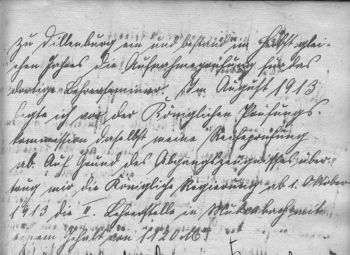 zu Dillenburg ein und bestand im Herbst glei-
chen Jahres die Aufnahmeprüfung für das
dortige Lehrerseminar. Im August 1913
legte ich vor der Königlichen Prüfungs
kommission daselbst meine Reifeprüfung
ab. Auf Grund des Abgangszeugnisses über-
trug mir die Königliche Regierung ab 1. Oktober
1913 die II. Lehrerstelle in mit
einem Gehalt von 1120 M.